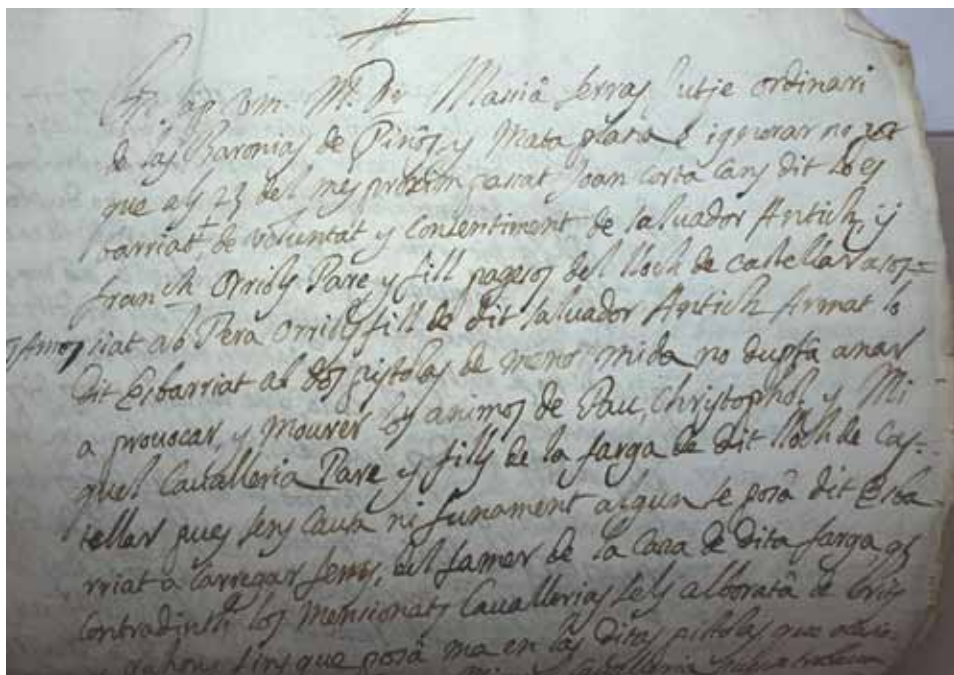 Massiá serras Jutje ordinari
de las Baronias de Pinós, y Mata plana é ignorar no pot
que als 23 del mes proxim passat Joan Corta Cans dit lo es
barriat, de voluntat y Consentiment de saluador Antich, y
franch Orriols Pare y fill pagesos del lloch de Castellar asos=
siat ab Pera Orriols fill de dit saluador Antich Armat lo
dit Esbarriat ab dos pistolas de menor mida no duptá anar
a prouocar, y mourer los animos de Pau, Christophol, y Mi
quel Caualleria Pare y fills de la farga de dit lloch de Cas=
tellar pues sens Causa ni funament algun se posá dit Esba
rriat á Carregar fems, del femer de la Casa de dita farga, y
Contradinth los mensionats Cauallerias sels alborotá de crits
fins que posá ma en las ditas pistolas